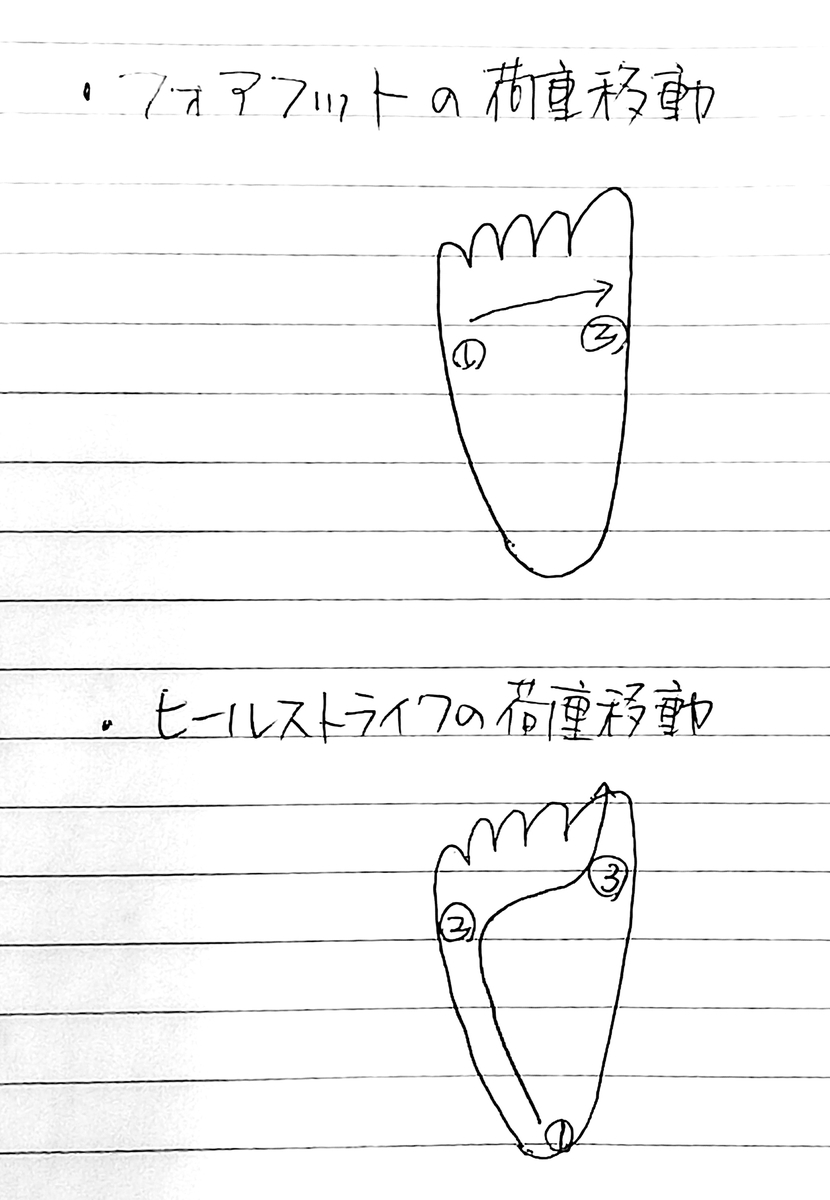 ・フォアフットの荷重移動
①
②
・ヒールストライクの荷重移動
③
②
①